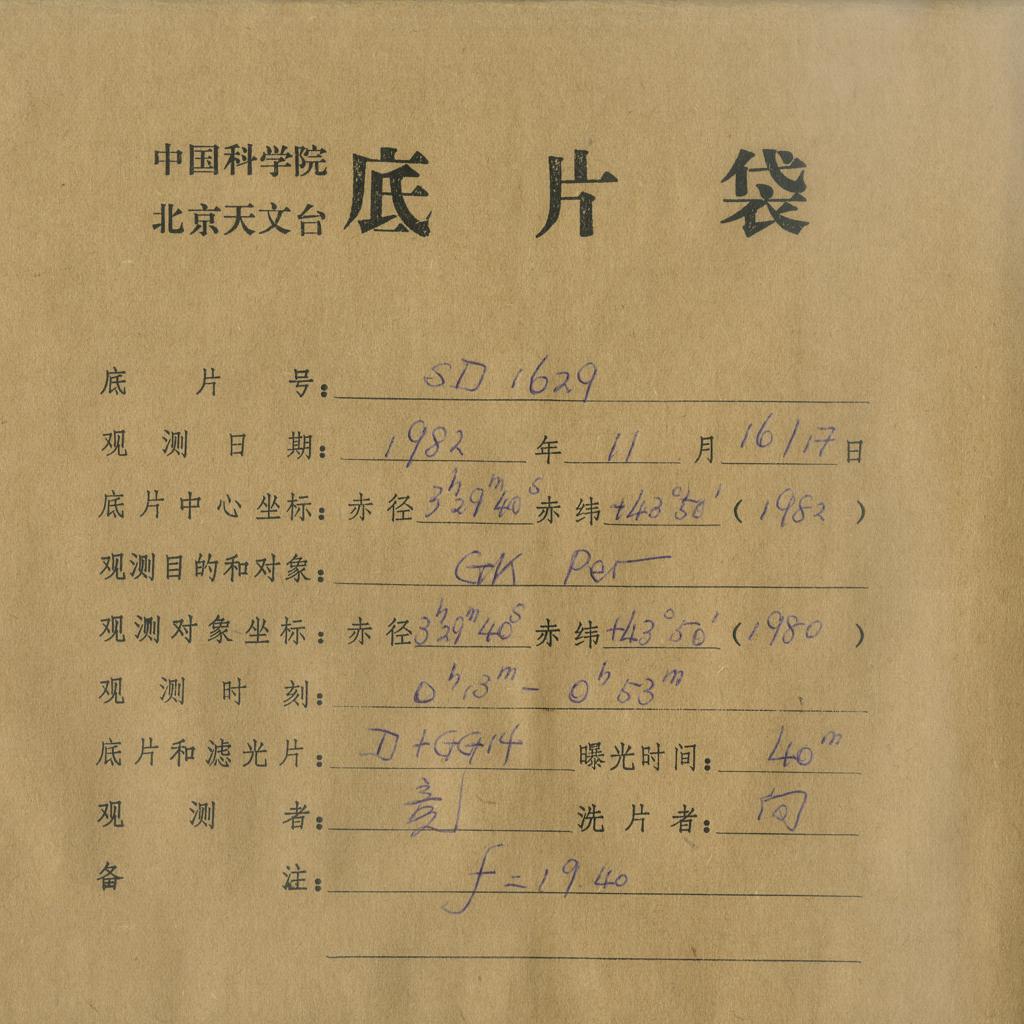 中国科学院
北京天文台
底片袋
底片号：SD 1629
观测日期：1982年11月16/17日
底片中心坐标：赤径3ʰ29ᵐ40ˢ赤纬+43°50′（1982）
观测目的和对象：GK Per
观测对象坐标：赤径3ʰ29ᵐ40ˢ赤纬+43°50′（1980）
观测时刻：0ʰ13ᵐ-0ʰ53ᵐ
底片和滤光片：D+GG14 曝光时间：40ᵐ
观测者： 洗片者：
备注：f=19.40